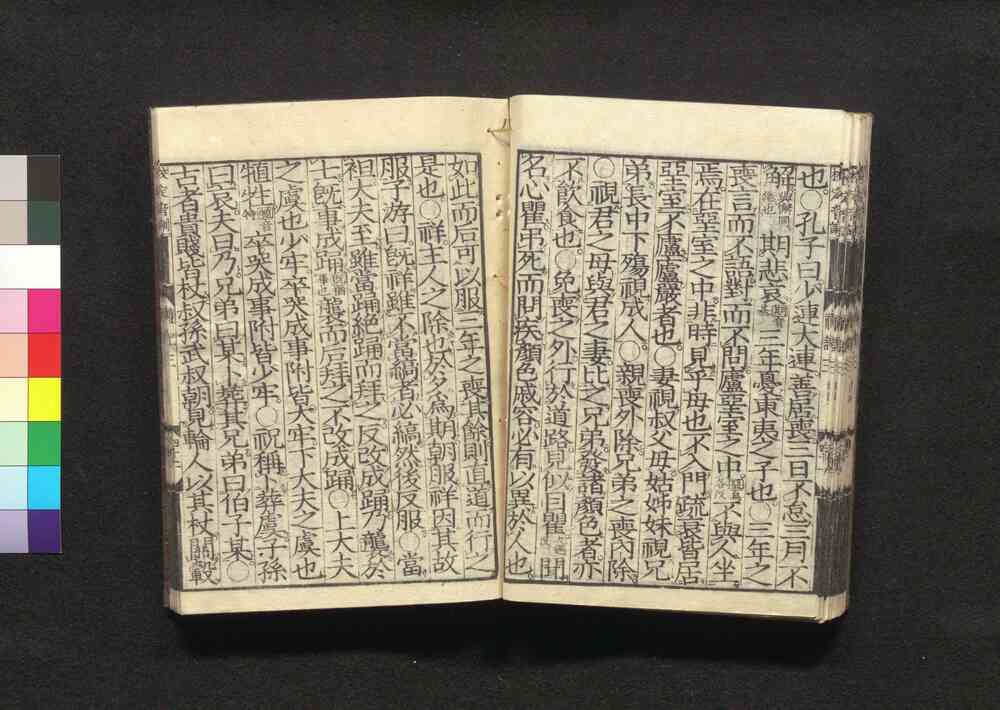 也○孔子曰少連大連善居喪三日不怠三月不
解期悲哀三年憂東夷之子也○三年之
喪言而不語對而不問廬堊室之中不與人坐
焉在堊室之中非時見乎母也不入門疏衰皆居
堊室不廬廬嚴者也○妻視叔父母姑姊妹視兄
弟長中下殤視成人○親喪外除兄弟之喪內除
○視君之母與君之妻比之兄弟發諸顏色者亦
不飲食也○免喪之外行於道路見似目瞿聞
名心瞿弔死而問疾顏色戚容必有以異於人也
如此而后可以服三年之喪其餘則直道而行之
是也○祥主人之除也於夕為期朝服祥因其故
服子游曰既祥雖不當縞者必縞然後反服○當
袒大夫至雖當踊絕踊而拜之反改成踊乃襲於
士既事成踊襲而后拜之不改成踊○上大夫
之虞也少牢卒哭成事附皆大牢下大夫之虞也
犆牲卒哭成事附皆少牢○祝稱卜葬虞子孫
曰哀夫曰乃兄弟曰某卜葬其兄弟曰伯子某○
古者貴賤皆杖叔孫武叔朝見輪人以其杖關轂